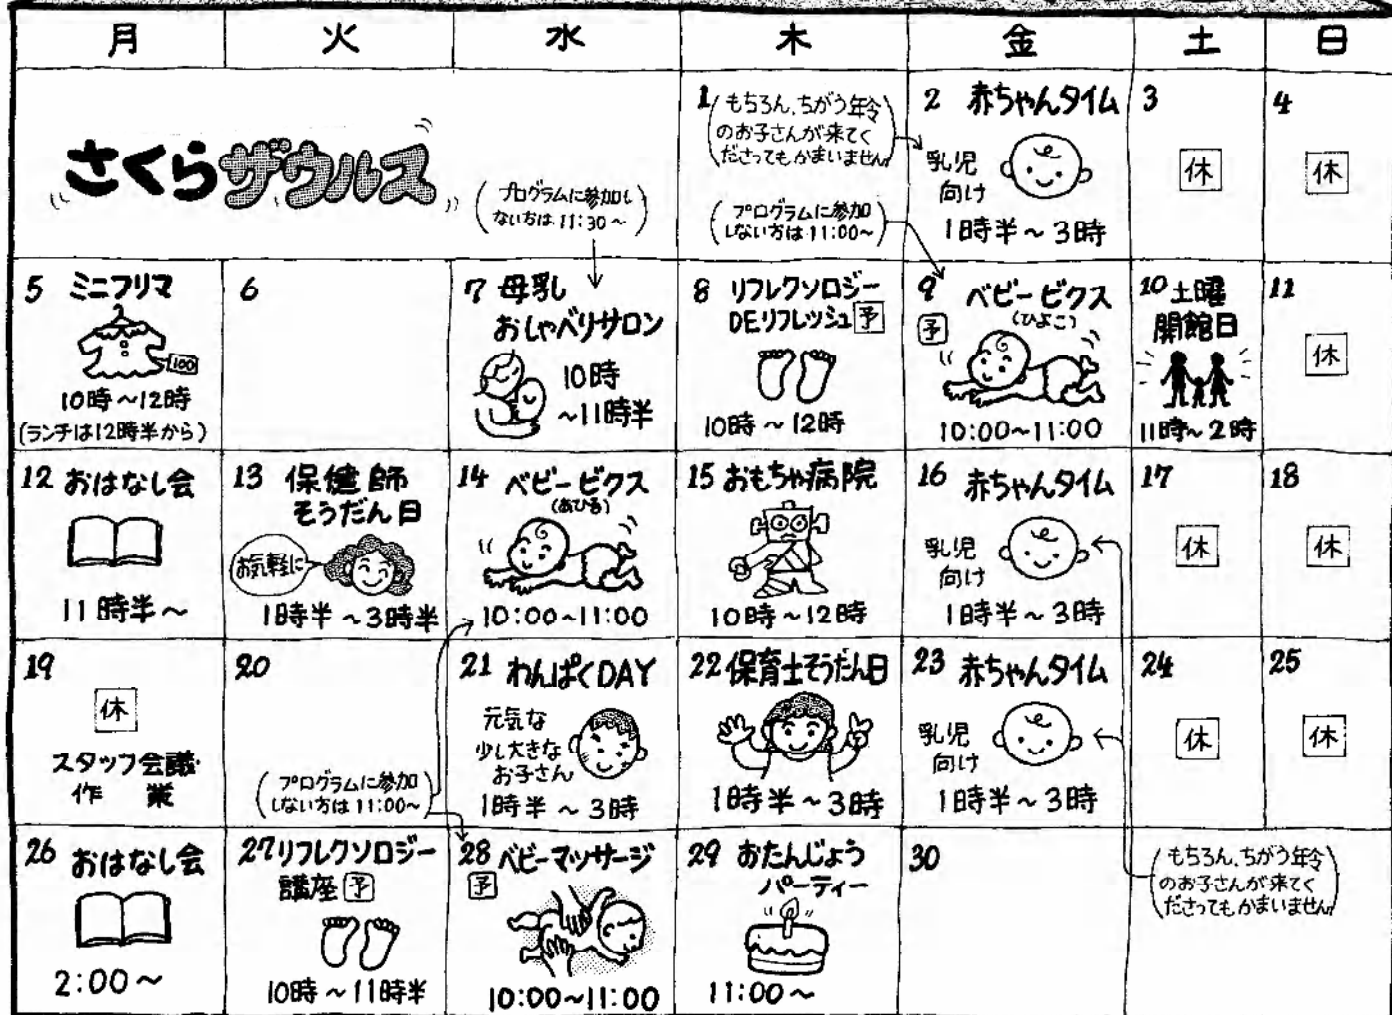 月 火 水 木 金 土 日
さくらザウルス
(プログラムに参加し
ない方は 11:30～)
1
(もちろん、ちがう年令
のお子さんが来てく
ださってもかまいません!)
(プログラムに参加
しない方は 11:00～)
2 赤ちゃんタイム
乳児
向け
1時半～3時
3
休
4
休
5 ミニフリマ
100
10時～12時
(ランチは12時半から)
6
7 母乳
おしゃべりサロン
10時
～11時半
8 リフレクソロジー
DEリフレッシュ 予
10時～12時
9 ベビービクス
(ひよこ)
予
10:00～11:00
10 土曜
開館日
11時～2時
11
休
12 おはなし会
11時半～
13 保健師
そうだん日
お気軽に
1時半～3時半
14 ベビービクス
(あひる)
10:00～11:00
15 おもちゃ病院
10時～12時
16 赤ちゃんタイム
乳児
向け
1時半～3時
17
休
18
休
19
休
スタッフ会議・
作業
20
(プログラムに参加
しない方は 11:00～)
21 わんぱくDAY
元気な
少し大きな
お子さん
1時半～3時
22 保育士そうだん日
1時半～3時
23 赤ちゃんタイム
乳児
向け
1時半～3時
24
休
25
休
26 おはなし会
2:00～
27 リフレクソロジー
講座 予
10時～11時半
28 ベビーマッサージ
予
10:00～11:00
29 おたんじょう
パーティー
11:00～
30
(もちろん、ちがう年令
のお子さんが来てく
ださってもかまいません!)